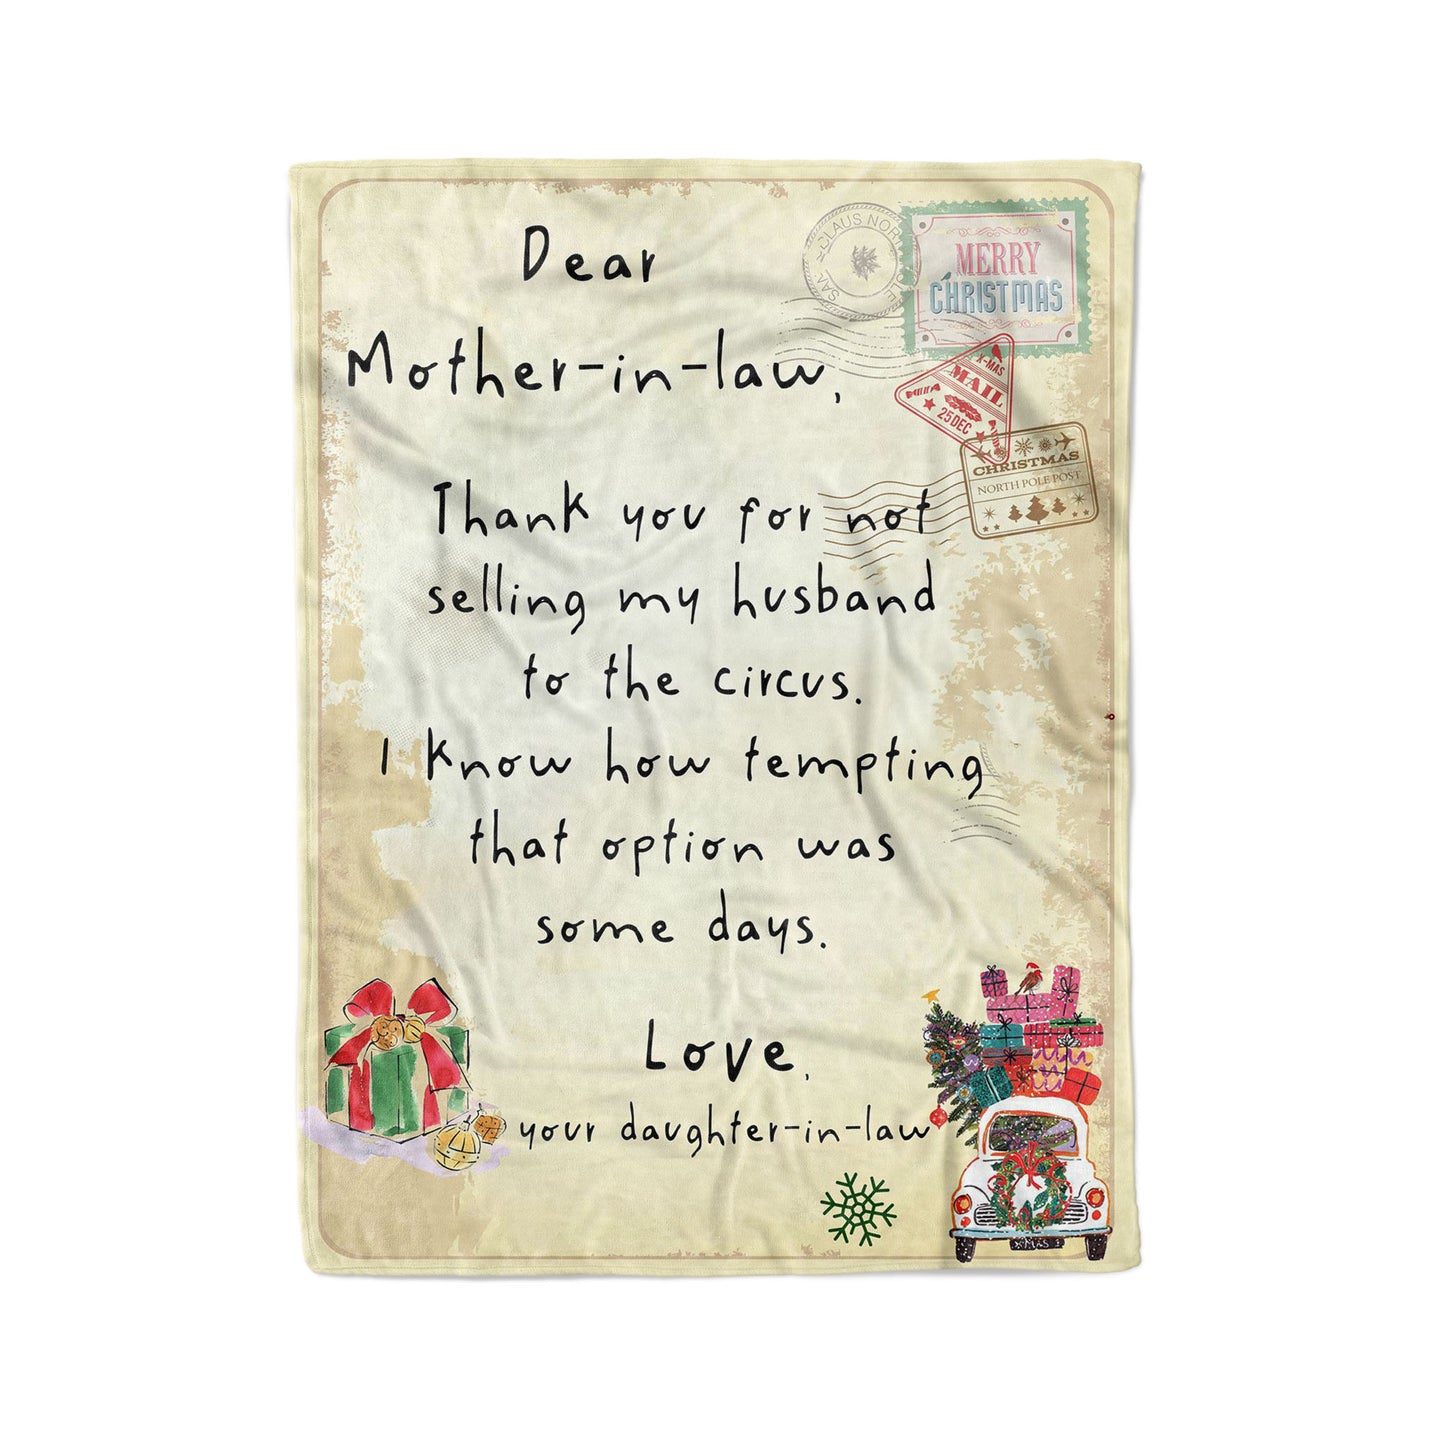 Dear
Mother-in-law,
Thank you for not
selling my husband
to the circus.
I know how tempting
that option was
some days.
Love,
your daughter-in-law
MERRY
CHRISTMAS
X-MAS
MAIL
25 DEC
CHRISTMAS
NORTH POLE POST
CLAUS NOR
X-MAS